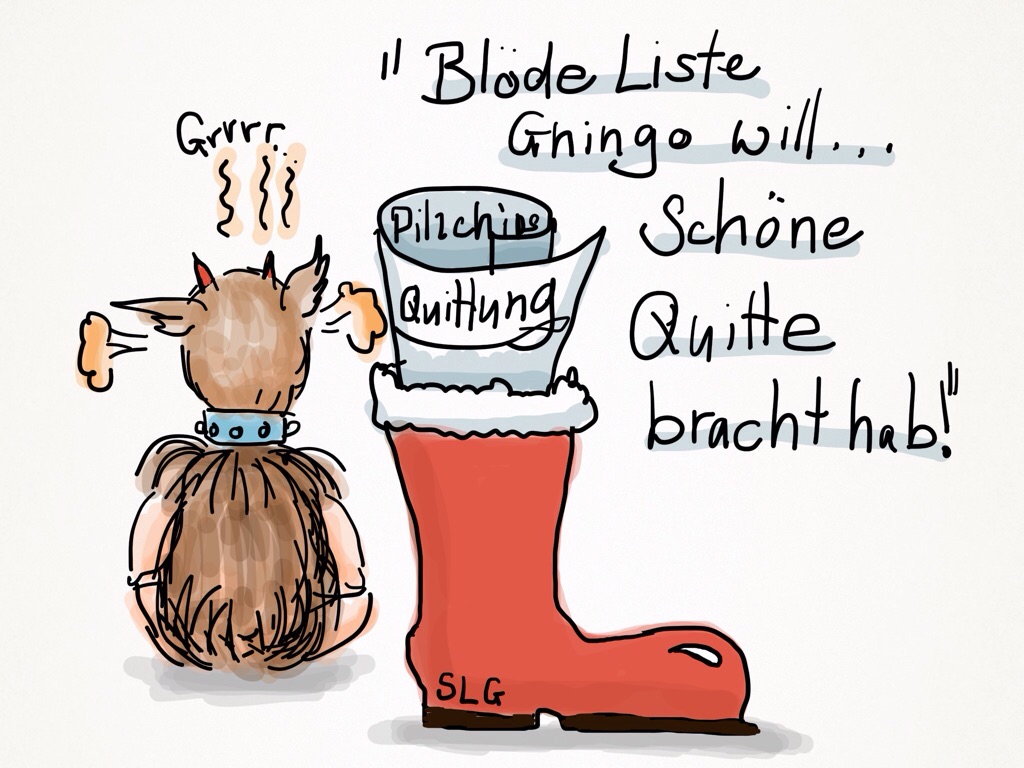 "Blöde Liste
Gningo will...
Schöne
Quitte
bracht hab!"
Grrrr...
Quittung
SLG